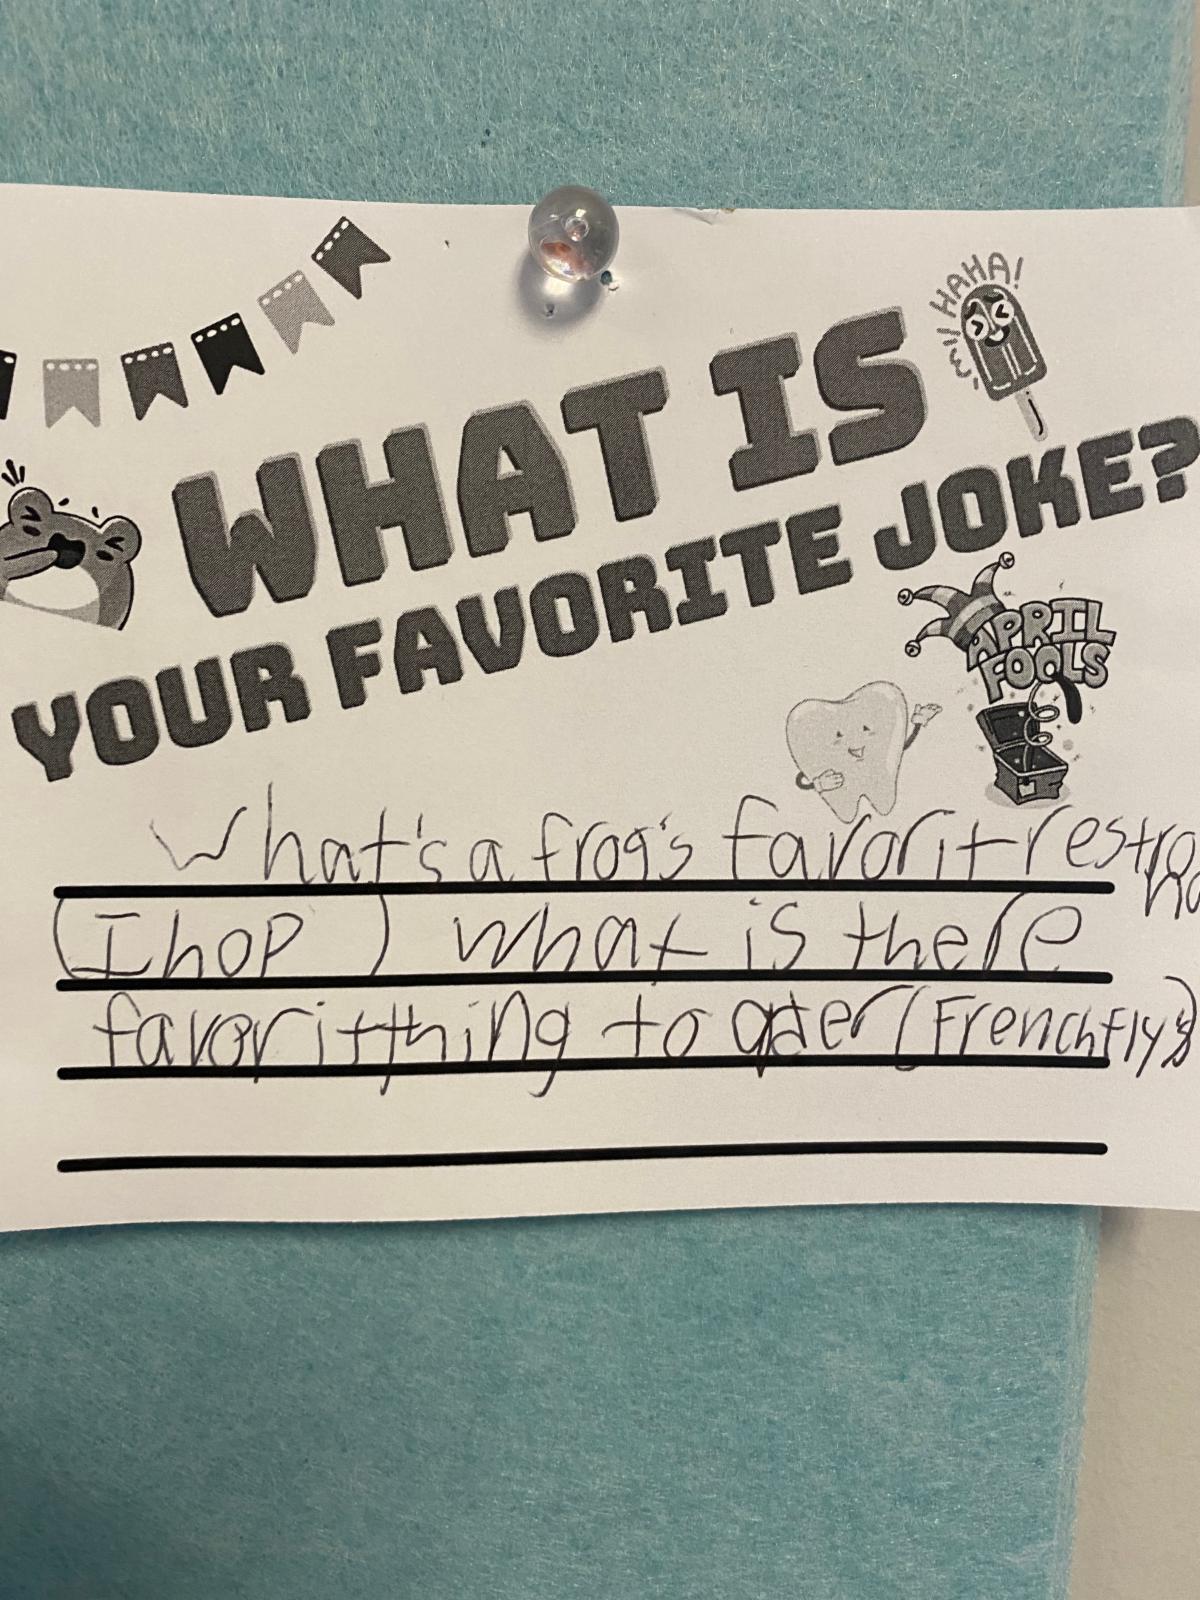 HAHA!
WHAT IS
YOUR FAVORITE JOKE?
APRIL
FOOLS
What's a frog's favorit restra
(Ihop) what is there
favorit thing to order (Frenchfly's)